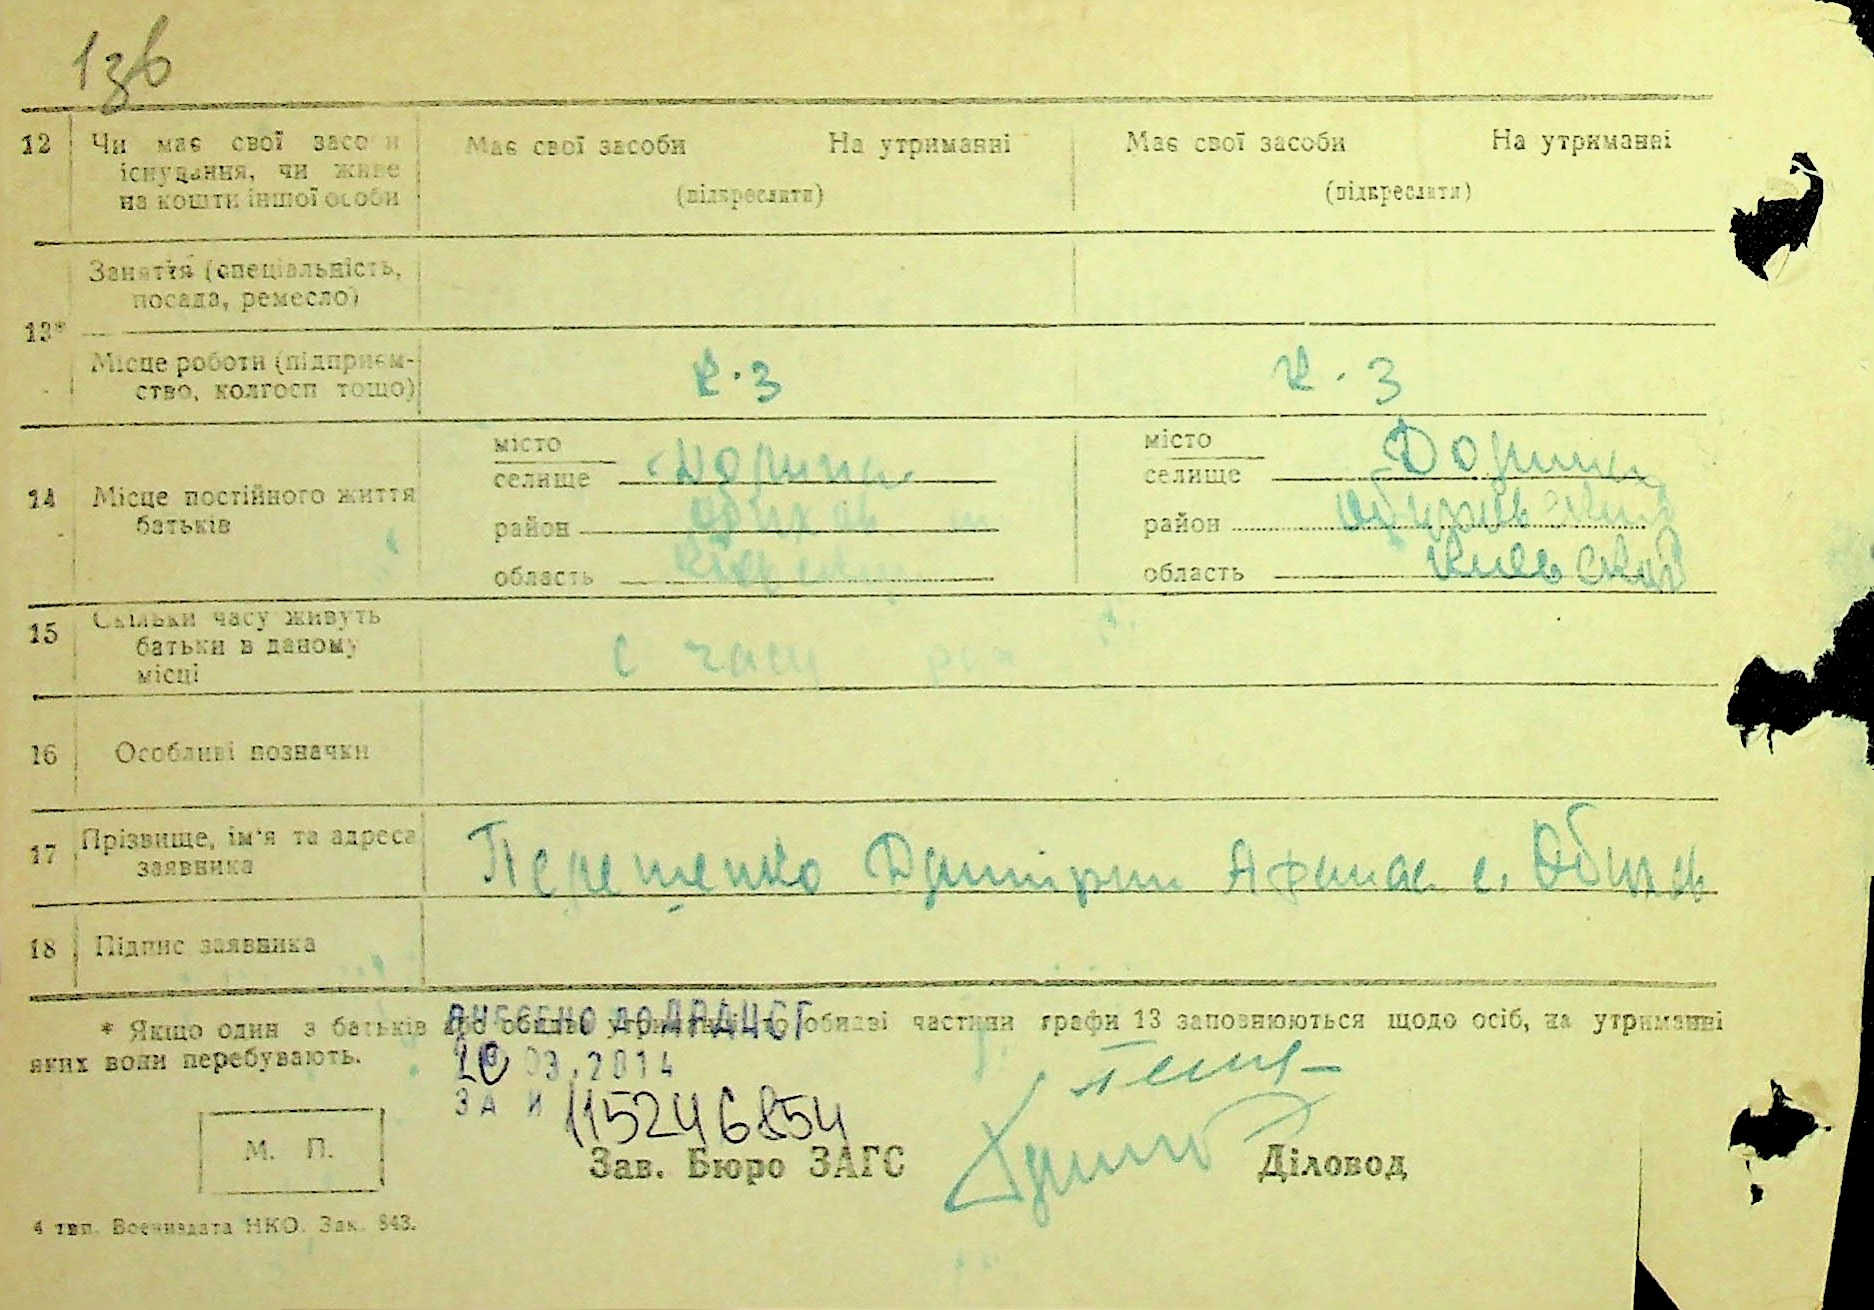 136
12 Чи має свої засоби Має свої засоби На утриманні Має свої засоби На утриманні
існування, чи живе
на кошти іншої особи (підкреслити) (підкреслити)
Заняття (спеціальність,
посада, ремесло)
13*
Місце роботи (підприєм-
ство, колгосп тощо) к.з к.з
місто місто
селище селище
14 Місце постійного життя
батьків район район
область область Киевской
15 Скільки часу живуть
батьки в даному с часу
місці
16 Особливі позначки
17 Прізвище, ім'я та адреса
заявника с.
18 Підпис заявника
ВНЕСЕНО ДО ДРАЦСГ
* Якщо один з батьків або обидва утриманці, то обидві частини графи 13 заповнюються щодо осіб, на утриманні
яких вони перебувають.
03.2014
ЗА № 115246854
М. П.
Зав. Бюро ЗАГС Діловод
4 тип. Воениздата НКО. Зак. 843.